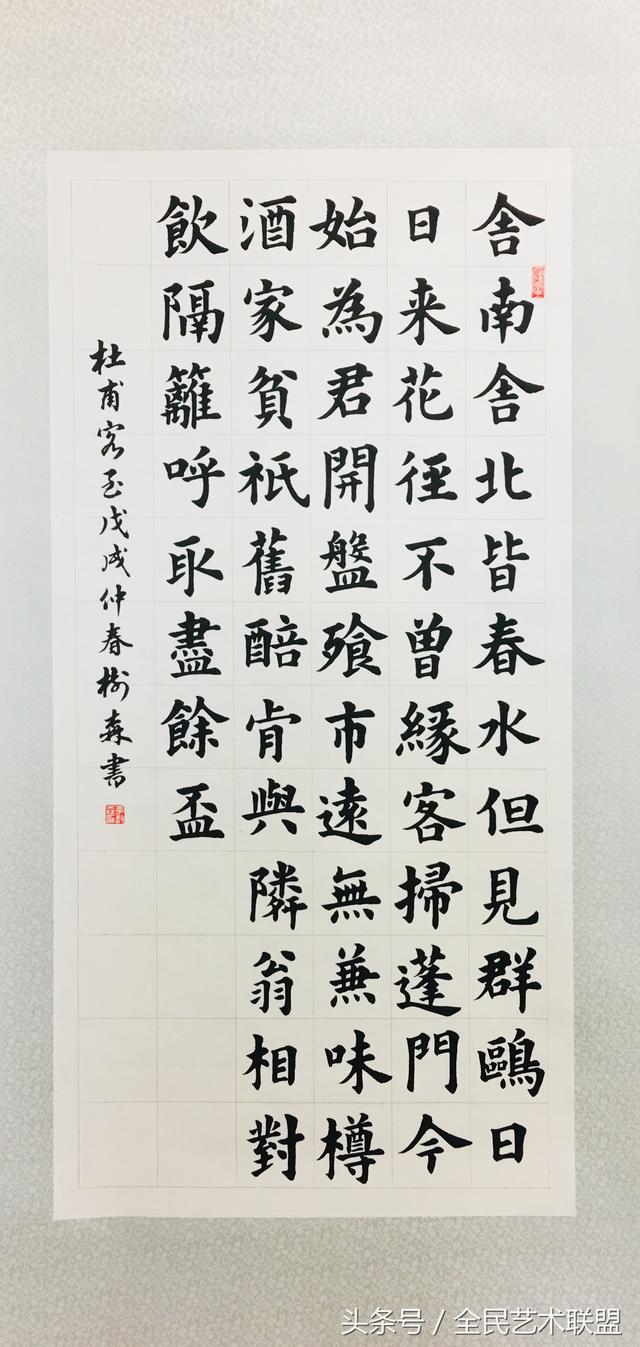 舎南舎北皆春水但見群鷗日
日来花徑不曾緣客掃蓬門今
始為君開盤飱市遠無兼味樽
酒家貧祇舊醅肯與隣翁相對
飲隔籬呼取盡餘盃
杜甫客至戊戌仲春樹森書
头条号 / 全民艺术联盟